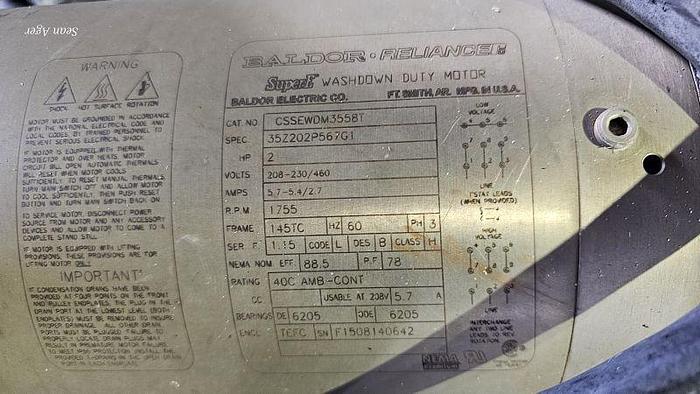 Sean Ager
WARNING
SHOCK HOT SURFACE ROTATION
MOTOR MUST BE GROUNDED IN ACCORDANCE
WITH THE NATIONAL ELECTRICAL CODE AND
LOCAL CODES, BY TRAINED PERSONNEL TO
PREVENT SERIOUS ELECTRICAL SHOCK.
IF MOTOR IS EQUIPPED WITH THERMAL
PROTECTOR AND OVER HEATS, MOTOR
CIRCUIT WILL OPEN. AUTOMATIC THERMALS
WILL RESET WHEN MOTOR COOLS
SUFFICIENTLY. TO RESET MANUAL THERMALS,
TURN MAIN SWITCH OFF AND ALLOW MOTOR
TO COOL SUFFICIENTLY. THEN PUSH RESET
BUTTON AND TURN MAIN SWITCH BACK ON
TO SERVICE MOTOR, DISCONNECT POWER
SOURCE FROM MOTOR AND ANY ACCESSORY
DEVICES AND ALLOW MOTOR TO COME TO A
COMPLETE STAND STILL.
IF MOTOR IS EQUIPPED WITH LIFTING
PROVISIONS, THESE PROVISIONS ARE FOR
LIFTING MOTOR ONLY.
IMPORTANT
IF CONDENSATION DRAINS HAVE BEEN
PROVIDED AT FOUR POINTS ON THE FRONT
AND PULLEY ENDPLATES, THE PLUG IN THE
DRAIN PORT AT THE LOWEST LEVEL (BOTH
ENDPLATES) MUST BE REMOVED TO INSURE
PROPER DRAINAGE. ALL OTHER DRAIN
PORTS MUST BE PLUGGED. FAILURE TO
PROPERLY LOCATE DRAIN PLUGS MAY
RESULT IN PREMATURE MOTOR FAILURE.
BALDOR • RELIANCE
SuperE WASHDOWN DUTY MOTOR
BALDOR ELECTRIC CO. FT. SMITH, AR. MFG. IN U.S.A.
CAT. NO CSSEWDM3558T
SPEC. 35Z202P567G1
HP 2
VOLTS 208-230/460
AMPS 5.7-5.4/2.7
R.P.M 1755
FRAME 145TC HZ 60 PH 3
SER. F. 1.15 CODE L DES B CLASS H
NEMA NOM. EFF. 88.5 P.F. 78
RATING 40C AMB-CONT
CC USABLE AT 208V 5.7 A
BEARINGS DE 6205 ODE 6205
ENCL TEFC SN F1508140642
LOW
VOLTAGE
LINE
(WHEN PROVIDED)
HIGH
VOLTAGE
LINE
INTERCHANGE
ANY TWO LINE
LEADS TO REV.
ROTATION
NEMA